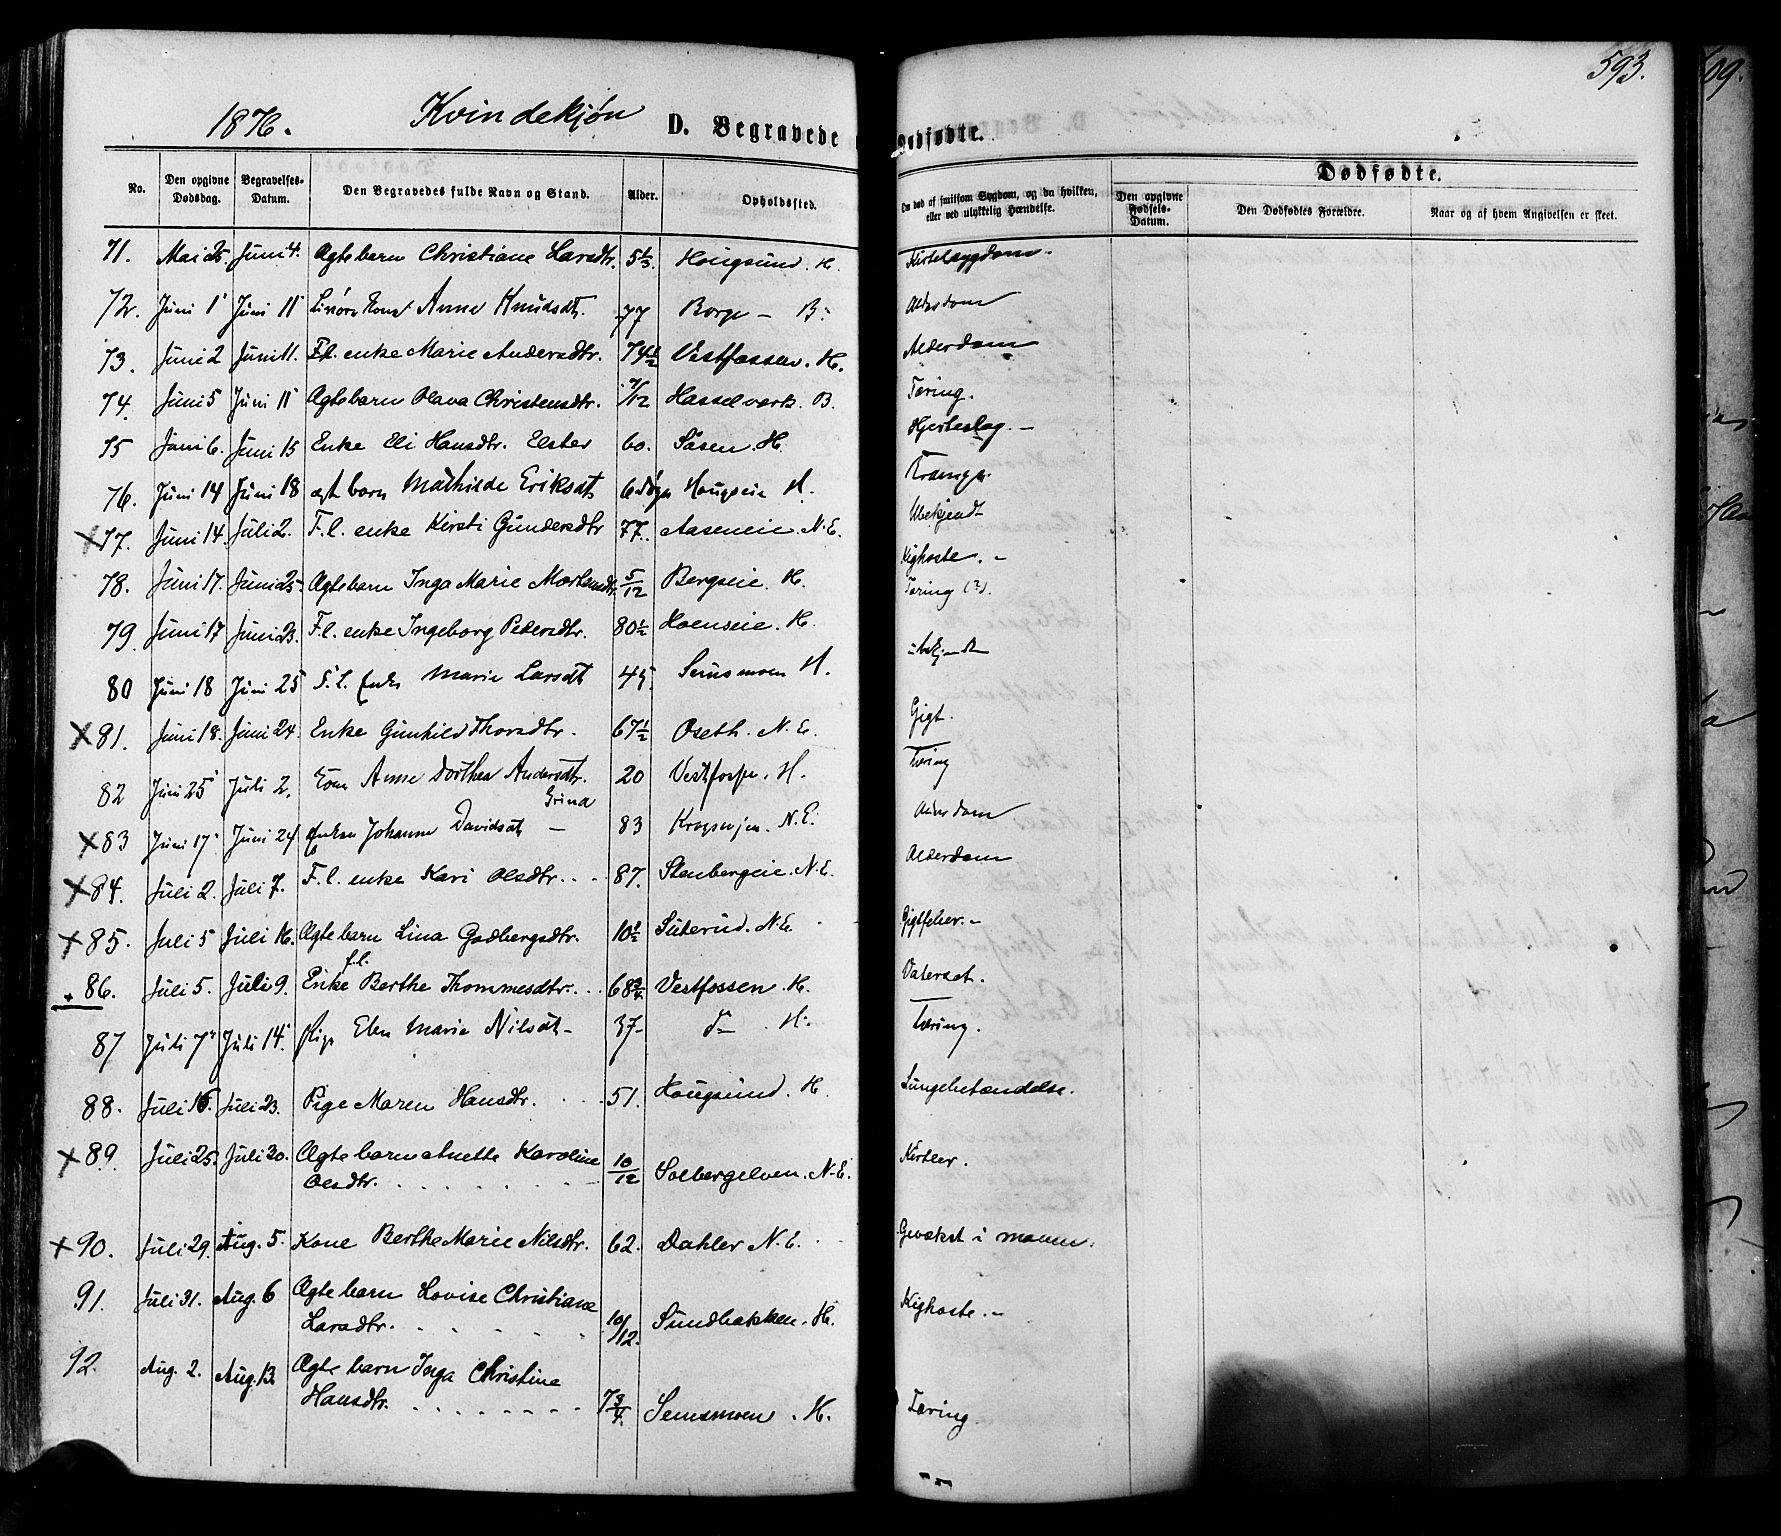 593.
1876. Kvindekjøn D. Begravede Dødfødte.
Dødfødte.
No. Den opgivne Dødsdag. Begravelses-Datum. Den Begravedes fulde Navn og Stand. Alder. Opholdssted. Om død af smitsom Sygdom, og da hvilken, eller ved ulykkelig Hændelse. Den opgivne Fødsels-Datum. Den Dødfødtes Forældre. Naar og af hvem Angivelsen er skeet.
71. Mai 25. Juni 4. Ægte barn Christiane Larsdtr. 5 1/3. Hougsund. H. Kirtelsygdom.
72. Juni 1 Juni 11 Anne Knudsdt. 77 Borge - B. Alderdom
73. Juni 2 Juni 11. F.l. enke Marie Andersdtr. 74 1/2 Vestfossen. H. Alderdom
74. Juni 5 Juni 11 Ægte barn Olava Christensdtr. 7/12 Hasselværk. B. Tæring.
75 Juni 6. Juni 15 Enke Eli Hansdtr. Elster 60. Såsen. H. Hjerteslag. -
76. Juni 14 Juni 18 ægt barn Mathilde Eriksdt 6 Hougseie H. Krampe.
X 77. Juni 14. Juli 2. F.l. enke Kirsti Gundersdtr 77. Aaseneie. N.E. Ubekjendt
78. Juni 17. Juni 25. Ægte barn Inga Marie 5/12 Bergseie. H. Kighoste. -
79. Juni 17 Juni 23. F.l. enke Ingeborg Pedersdtr. 80 1/2 Hoenseie. H. Tæring (?).
80 Juni 18 Juni 25 F.l. Enke Marie Larsdt 45. Semsmoen H. ubekjendt
X 81. Juni 18. Juni 24. Enke Gunhild Thorsdtr. 67 1/2 Oseth. N.E. Gigt.
82 Juni 25 Juli 2. Kone Anne Dorthea Andersdtr. 20 Vestfossen. H. Tæring
X 83 Juni 17 Juni 24 Enken Johanne Davidsdt - 83 N.E. Alderdom
X 84. Juli 2. Juli 7. F.l. enke Kari Olsdtr. 87. Stenbergeie. N.E. Alderdom
X 85. Juli 5 Juli 16. Ægte barn Lina Gudbergsdtr. 10 1/2 Suterud. N.E. Gigtfeber. -
f.l.
86. Juli 5. Juli 9. Enke Berthe Thommesdtr. 68 3/4 Vestfossen. H. Vatersot.
87 Juli 7 Juli 14. Pige Elen Marie Nilsdt - 37 - do . H. Tæring.
88. Juli 16. Juli 23. Pige Maren Hansdtr. 51. Hougsund. H. Lungebetændelse.
X 89. Juli 25. Juli 30. Ægte barn Anette Karoline
Olsdtr. 10/12 Solbergelven. N.E. Kirtler.
X 90. Juli 29. Aug. 5. Kone Berthe Marie Nilsdtr. 62. Dahler N.E. Gevækst i maven.
91. Juli 31. Aug. 6 Ægte barn Lovise Christiane
Larsdtr. 10/12. Sundbakken. H. Kighoste. -
92. Aug. 2. Aug. 13. Ægte barn Inga Christine
Hansdtr. 7 3/4. Semsmoen. H. Tæring.